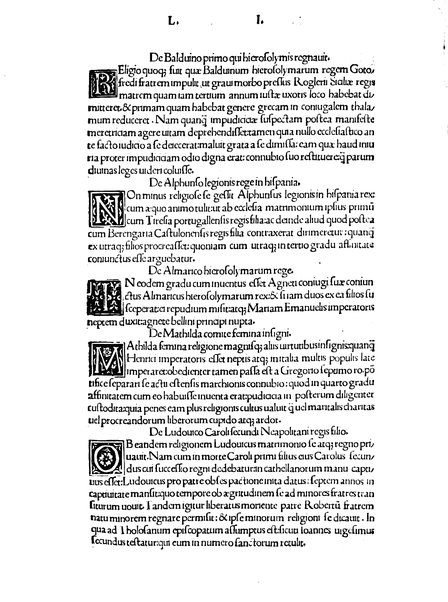 L. I.
De Balduino primo qui hierosolymis regnauit.
REligio quoq; fuit quæ Balduinum hierosolymarum regem Goto/
fredi fratrem impulit, ut graui morbo pressus Rogleri Siciliæ regis
matrem quam iam tertium annum iustæ uxoris loco habebat di
mitteret,& primam quam habebat genere grecam in coniugalem thala/
mum reduceret. Nam quanq̃ impudiciciæ suspectam postea manifeste
meretriciam agere uitam deprehendisset tamen quia nullo ecclesiastico an
te facto iudicio a se
riu proter impudiciciam odio digna erat: connubio suo restituere q̃ parum
diuinas leges uideri coluisse.
De Alphunso legionis rege in hispania.
NOn minus religiose se gessit Alphunsus legionis in hispania rex:
cum æquo animo tulit ut ab ecclesia matrimonium ipsius primũ
cum Tiresia portugallensis regis filia: ac deinde aliud quod postea
cum Berengaria Castulonensis regis filia contraxerat dirimeretur: quanq̃
ex utraq; filios procreasset: quoniam cum utraq; in tertio gradu affinitate
coniunctus esse arguebatur.
De Almarico hierosolymarum rege.
IN eodem gradu cum inuentus esset Agneti coniugi suæ coniun/
ctus Almaricus hierosolymarum rex:& si iam duos ex ea filios su
sceperat eam repudium misit:atq; Mariam Emanuelis imperatoris
neptem duxit:
De Mathilda comite femina insigni.
MAthilda femina religione magnifisq; aliis uirturibus insignis quanq̃
Henrici imperatoris esset neptis atq; in italia multis populis late
imperaret obedienter tamen passa est a Gregorio septimo ro. põ
tifice separari se actu estensis marchionis connubio: quod in quarto gradu
affinitatem cum eo habuisse inuenta erat:pudicitia in posterum diligenter
custodita:quia penes eam plus religionis cultus ualuit q̃ uel maritalis charitas
uel procreandorum liberorum cupido atq; ardor.
De Ludouico Caroli secundi Neapolitani regis filio.
OB eandem religionem Ludouicus matrimonio se atq; regno pri/
uauit. Nam cum in morte Caroli primi filius eius Carolus secun/
dus cui successio regni dedebatur:in cathellanorum manu capti/
uus esset:Ludouicus pro patre obses pactione inita datus: septem annos in
captiuitate mansit:quo tempore ob ægritudinem se ad minores fratres tran
siturum uouit. Tandem igitur liberatus moriente patre Robertũ fratrem
natu minorem regnare permisit: & ipse minorum religioni se dicauit. In
qua ad Tholosanum episcopatum assumptus est:sicuti Ioannes uigesimus
secundus testatur:qui eum in numero sanctorum retulit.